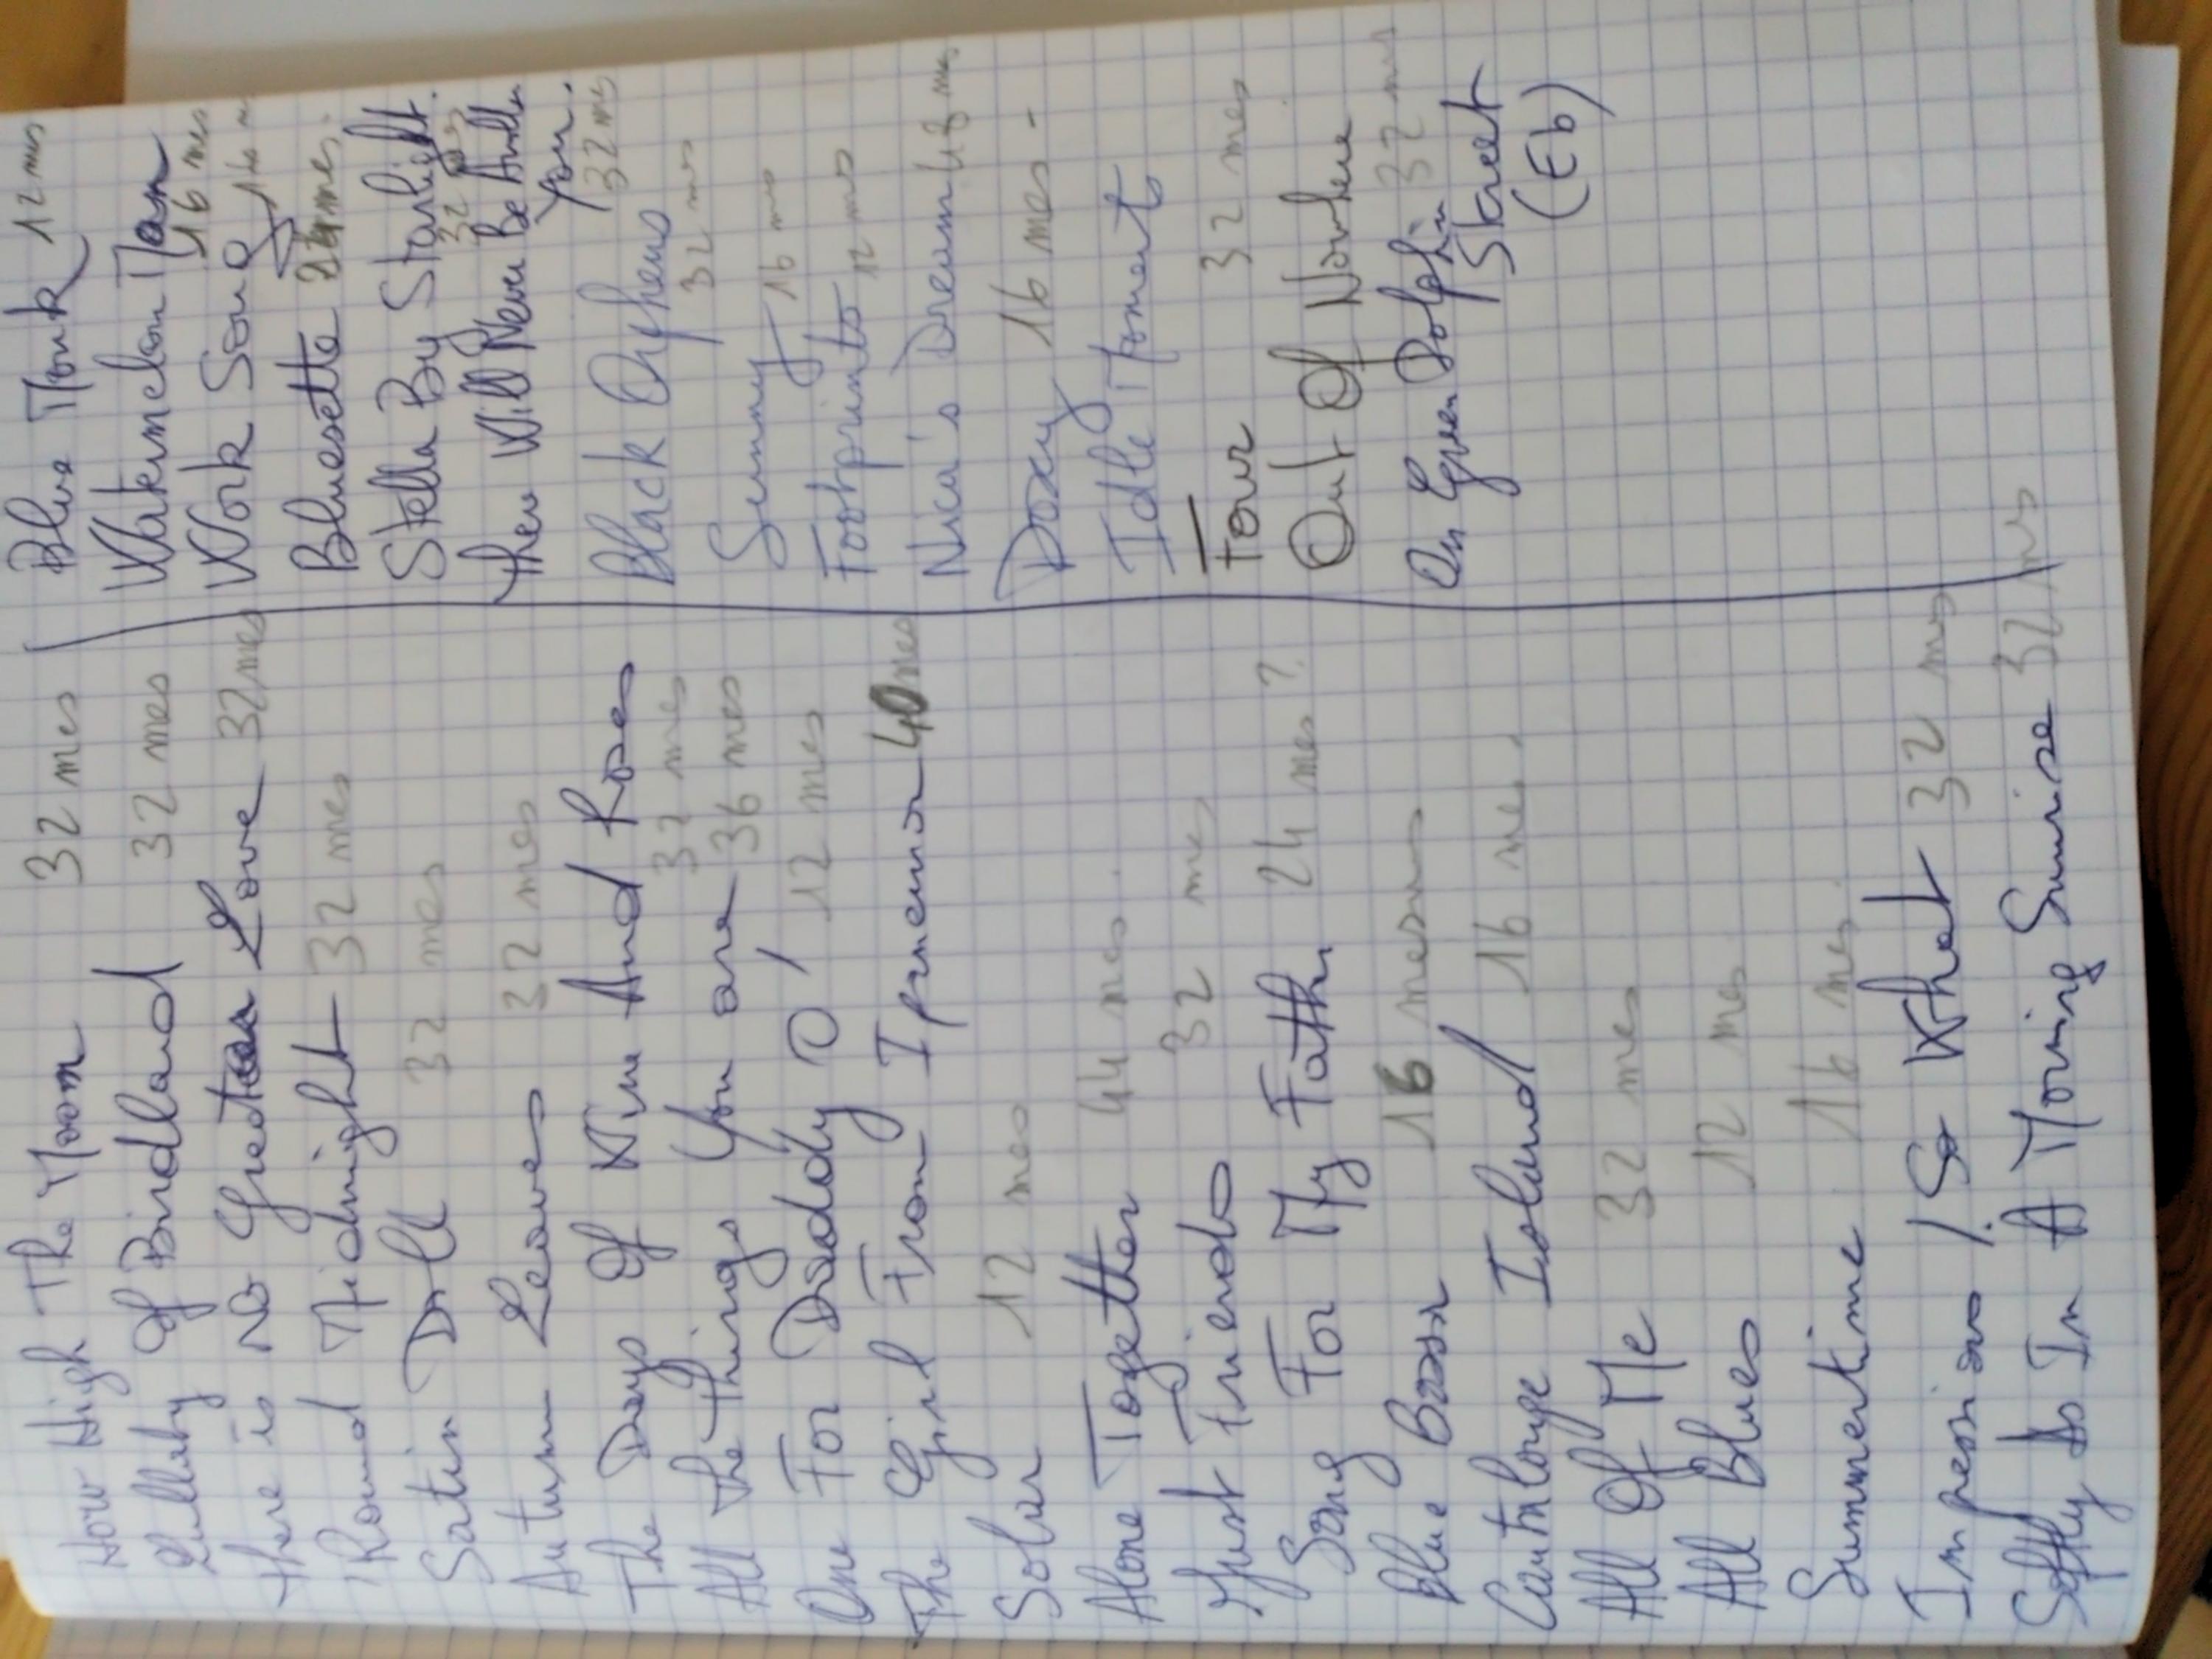 How High The Moon 32 mes
Lullaby Of Birdland 32 mes
There is No Greater Love 32 mes
'Round Midnight 32 mes
Satin Doll 32 mes
Autumn Leaves 32 mes
The Days Of Wine And Roses
32 mes
All The Things You are 36 mes
One For Daddy O' 12 mes
The Girl From Ipanema 40 mes
Solar 12 mes
Alone Together 44 mes
Just Friends 32 mes
Song For My Father 24 mes ?
Blue Bossa 16 mesures
Cantaloupe Island 16 mes.
All Of Me 32 mes
All Blues 12 mes
Summertime 16 mes.
Impressions / So What 32 mes
Softly As In A Moring Sunrise 32 mes
Blue Monk 12 mes
Watermelon Man
16 mes
Work Song 16 m
Bluesette 24 mes.
Stella By Starlight.
32 mes
There Will Never Be Another
You.
32 mes
Black Orpheus
32 mes
Sunny 16 mes
Footprints 12 mes
Nica's Dream 48 mes
Doxy 16 mes -
Idle Moments
Four 32 mes
Out Of Nowhere
32 mes
On Green Dolphin
Street
(Eb)